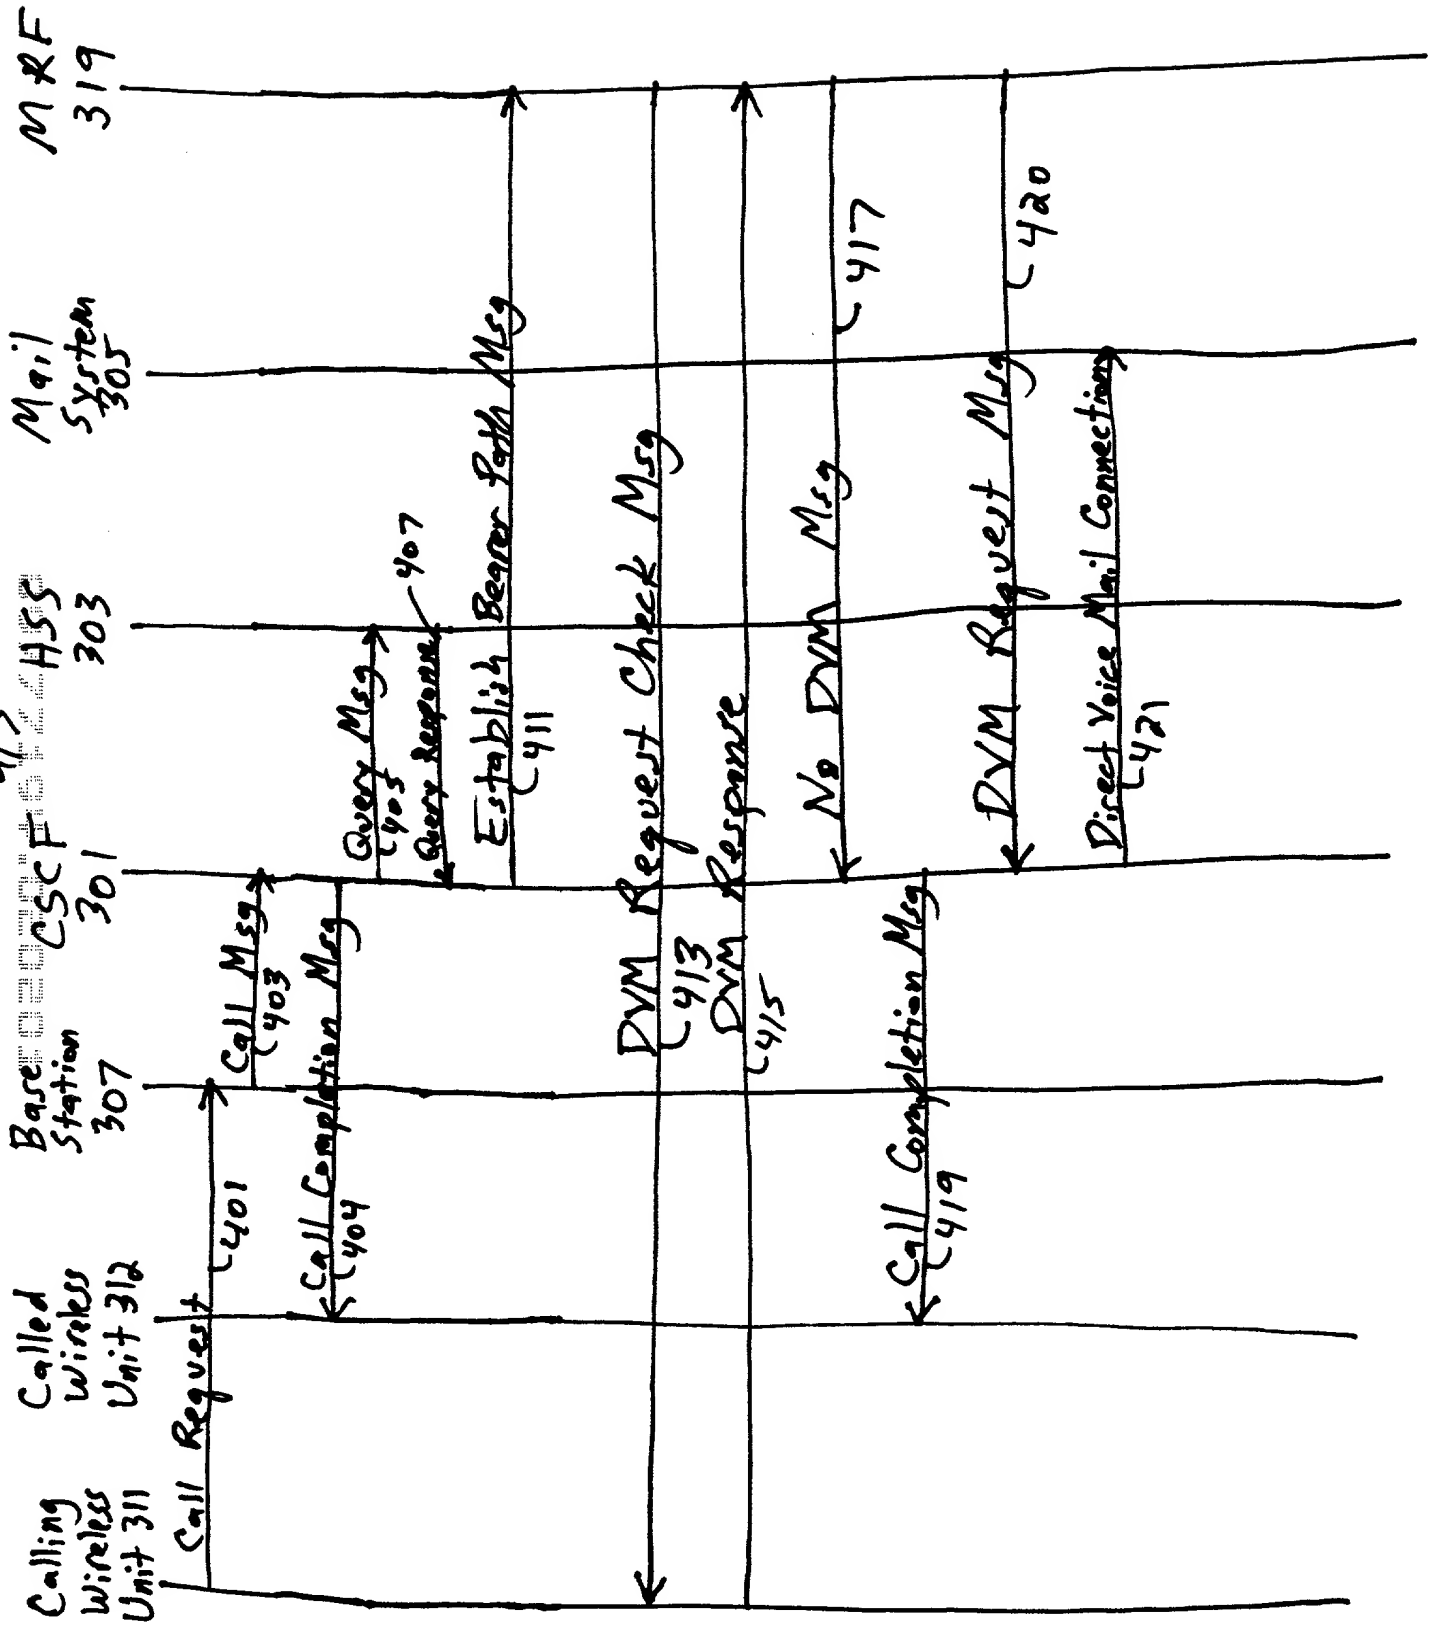 Calling
Wireless
Unit 311
Called
Wireless
Unit 312
Base
Station
307
CSCF
301
HSS
303
Mail
System
305
MRF
319
Call Request
401
Call Msg
403
Call Completion Msg
404
Query Msg
405
Query Response
407
Establish Bearer Path Msg
411
DVM Request Check Msg
413
DVM Response
415
No DVM Msg
417
Call Completion Msg
419
DVM Request Msg
420
Direct Voice Mail Connection
421